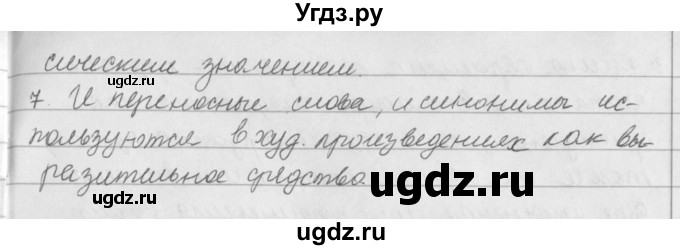 Угдз.ру
сическим значением.
gdz.ru
7. И переносные слова, и синонимы ис-
пользуются в худ. произведениях как вы-
gdz.ru
разительное средство.
gdz.ru
ugdz.ru
gdz.ru
ugdz.ru